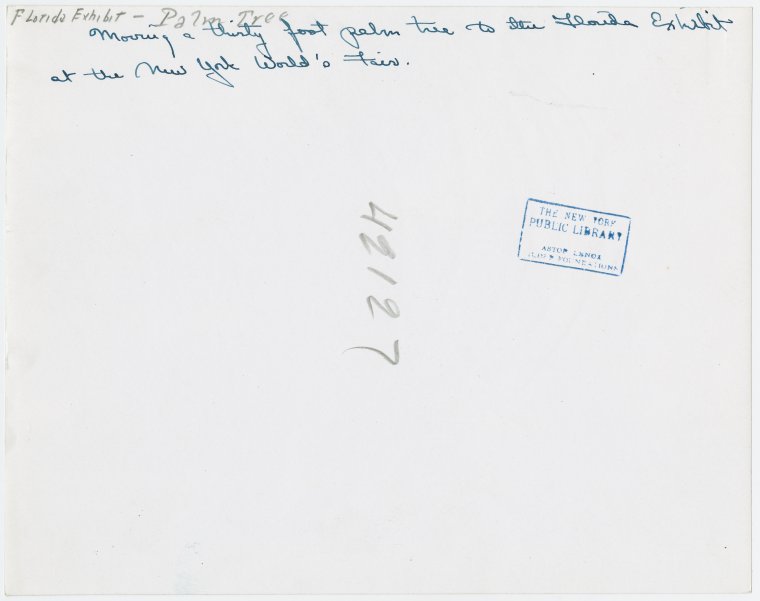 Florida Exhibit - Palm Tree
Moving a thirty foot palm tree to the Florida Exhibit
at the New York World's Fair.
42127
THE NEW YORK
PUBLIC LIBRARY
ASTOR LENOX
TILDEN FOUNDATIONS